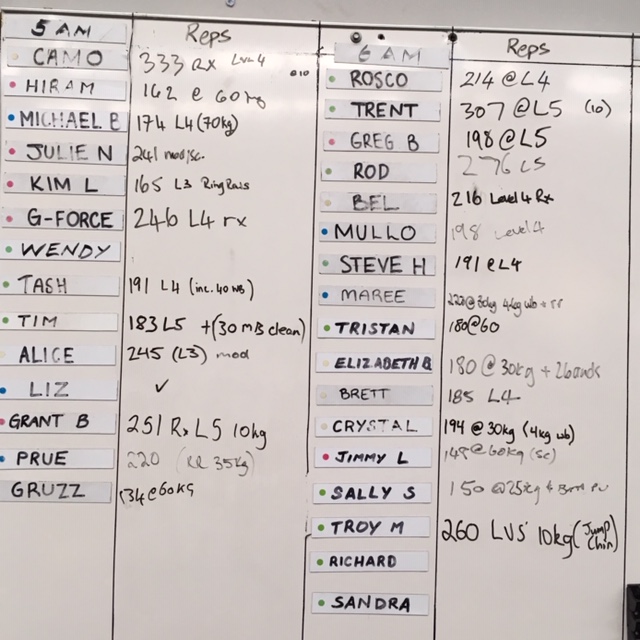 5 AM Reps
CAMO 333 Rx Lvl 4
HIRAM 162 @ 60 kg
MICHAEL B 174 L4 (70kg)
JULIE N 241 mod/sc.
KIM L 165 L3 Ring Rows
G-FORCE 246 L4 rx
WENDY
TASH 191 L4 (inc. 40 WB)
TIM 183 L5 + (30 MB clean)
ALICE 245 (L3) mod
LIZ ✓
GRANT B 251 Rx L5 10kg
PRUE 220 (RR 35kg)
GRUZZ 134 @ 60kg
6 AM Reps
ROSCO 214 @ L4
TRENT 307 @ L5 (10)
GREG B 198 @ L5
ROD 276 L5
BEL 216 Level 4 Rx
MULLO 198 Level 4
STEVE H 191 @ L4
MAREE @ 30kg 4kg wb +
TRISTAN 180 @ 60
ELIZABETH B 180 @ 30kg +
BRETT 185 L4
CRYSTAL 194 @ 30kg (4kg wb)
JIMMY L 148 @ 60kg (sc)
SALLY S 150 @ 25kg
TROY M 260 LV5 10kg (Jump Chin)
RICHARD
SANDRA